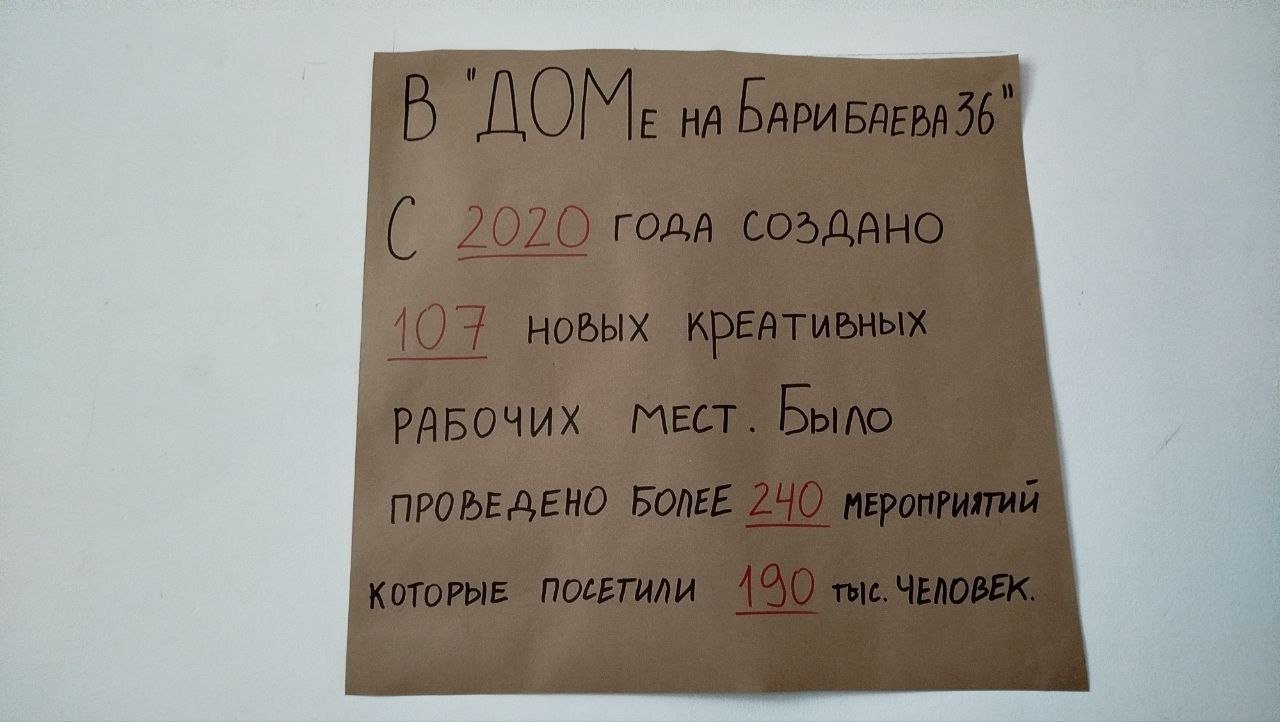 В "ДОМе на Барибаева 36"
С 2020 года создано
107 новых креативных
рабочих мест. Было
проведено более 240 мероприятий
которые посетили 190 тыс. человек.